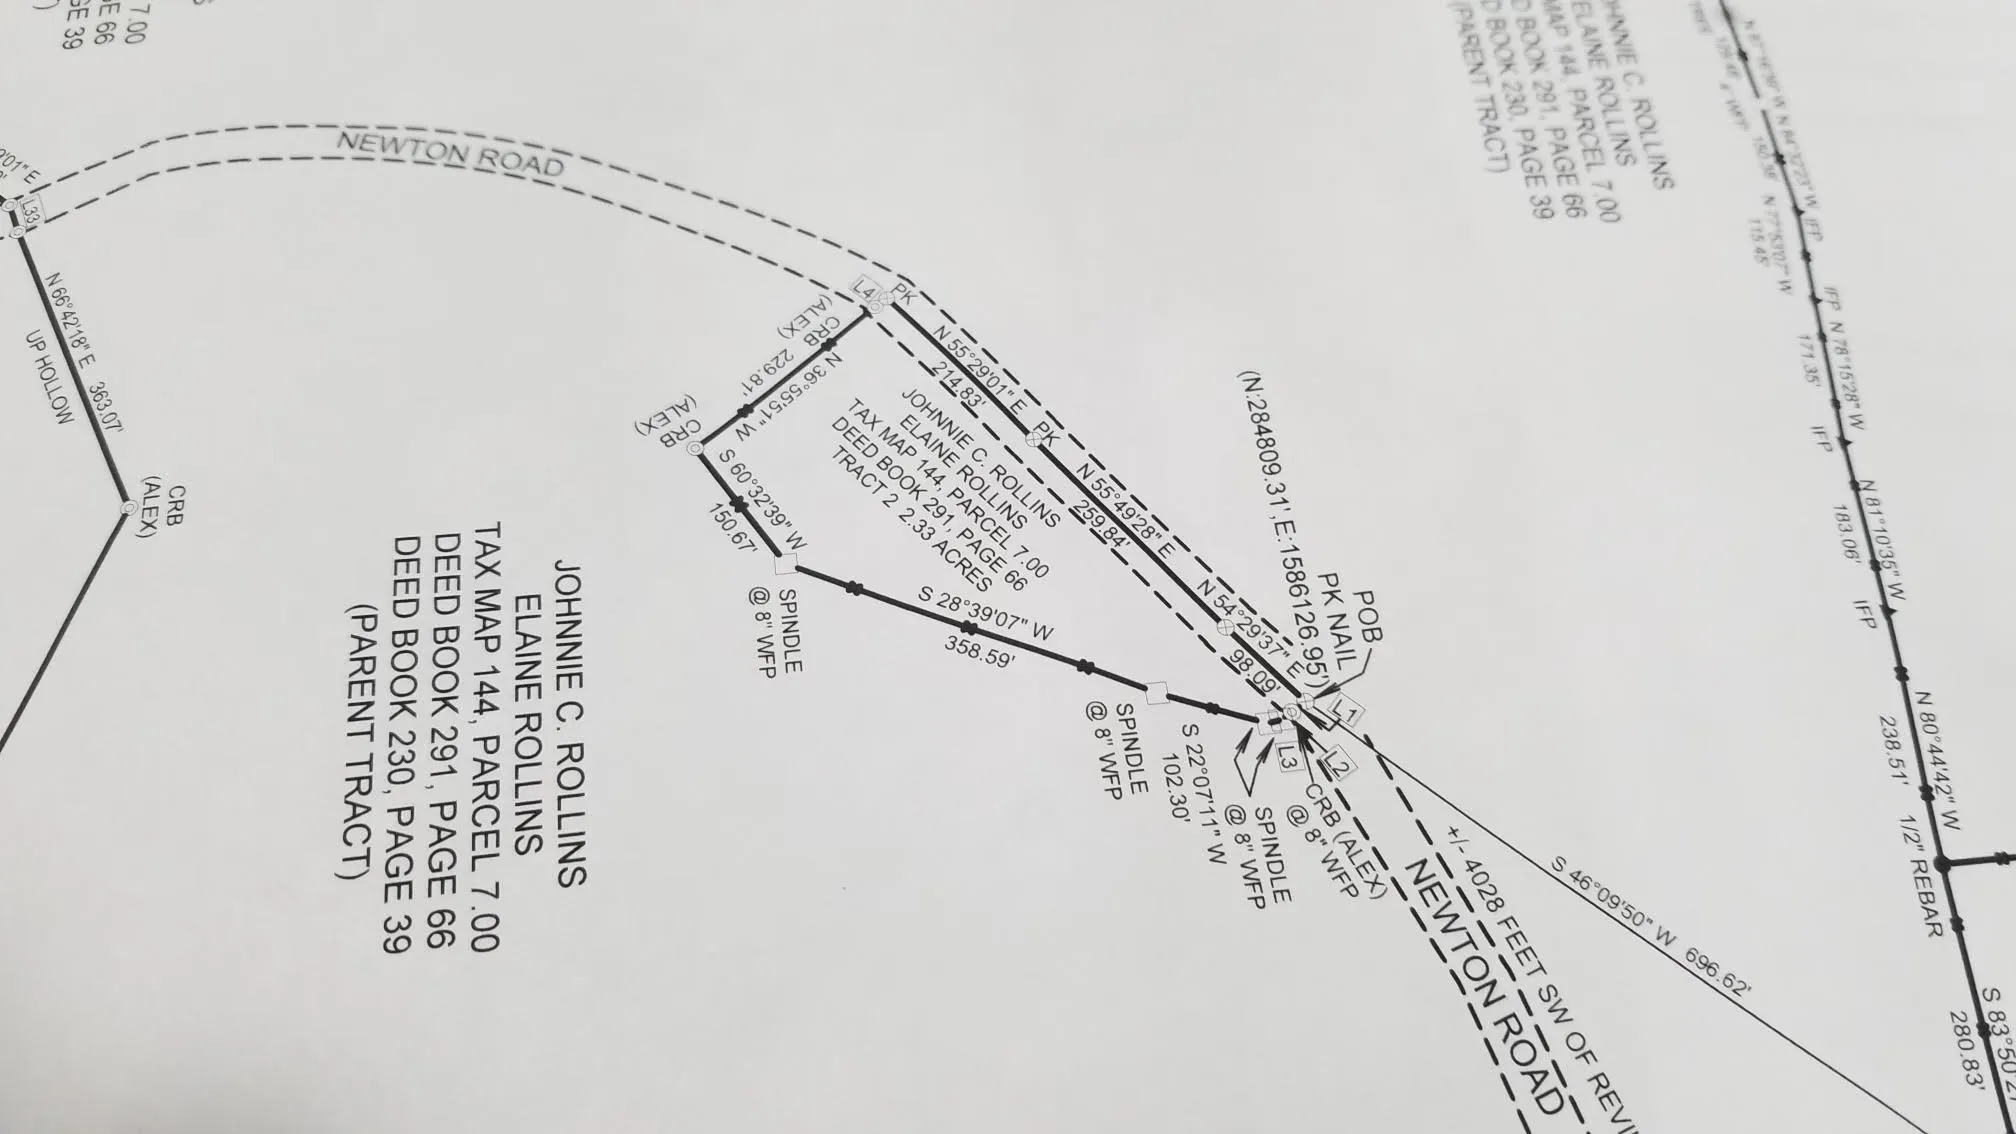 7.00
GE 66
GE 39
NEWTON ROAD
L33
N 66°42'18" E 363.07'
UP HOLLOW
CRB
(ALEX)
JOHNNIE C. ROLLINS
ELAINE ROLLINS
TAX MAP 144, PARCEL 7.00
DEED BOOK 291, PAGE 66
DEED BOOK 230, PAGE 39
(PARENT TRACT)
L4
PK
CRB
(ALEX)
N 36°55'51" W
229.81'
CRB
(ALEX)
S 60°32'39" W
150.67'
SPINDLE
@ 8" WFP
S 28°39'07" W
358.59'
SPINDLE
@ 8" WFP
S 22°07'11" W
102.30'
SPINDLE
@ 8" WFP
CRB (ALEX)
@ 8" WFP
L3
L2
L1
N 55°29'01" E
214.83'
PK
N 55°49'28" E
259.84'
N 54°29'37" E
98.09'
JOHNNIE C. ROLLINS
ELAINE ROLLINS
TAX MAP 144, PARCEL 7.00
DEED BOOK 291, PAGE 66
TRACT 2 2.33 ACRES
POB
PK NAIL
(N:284809.31', E:1586126.95')
+/- 4028 FEET SW OF REVI
NEWTON ROAD
S 46°09'50" W 696.62'
OHNNIE C. ROLLINS
ELAINE ROLLINS
MAP 144, PARCEL 7.00
D BOOK 291, PAGE 66
D BOOK 230, PAGE 39
(PARENT TRACT)
IFP
N 77°53'07" W
115.45'
IFP
N 78°15'28" W
171.35'
IFP
N 81°10'35" W
183.06'
IFP
N 80°44'42" W
238.51'
1/2" REBAR
S 83°50'27
280.83'